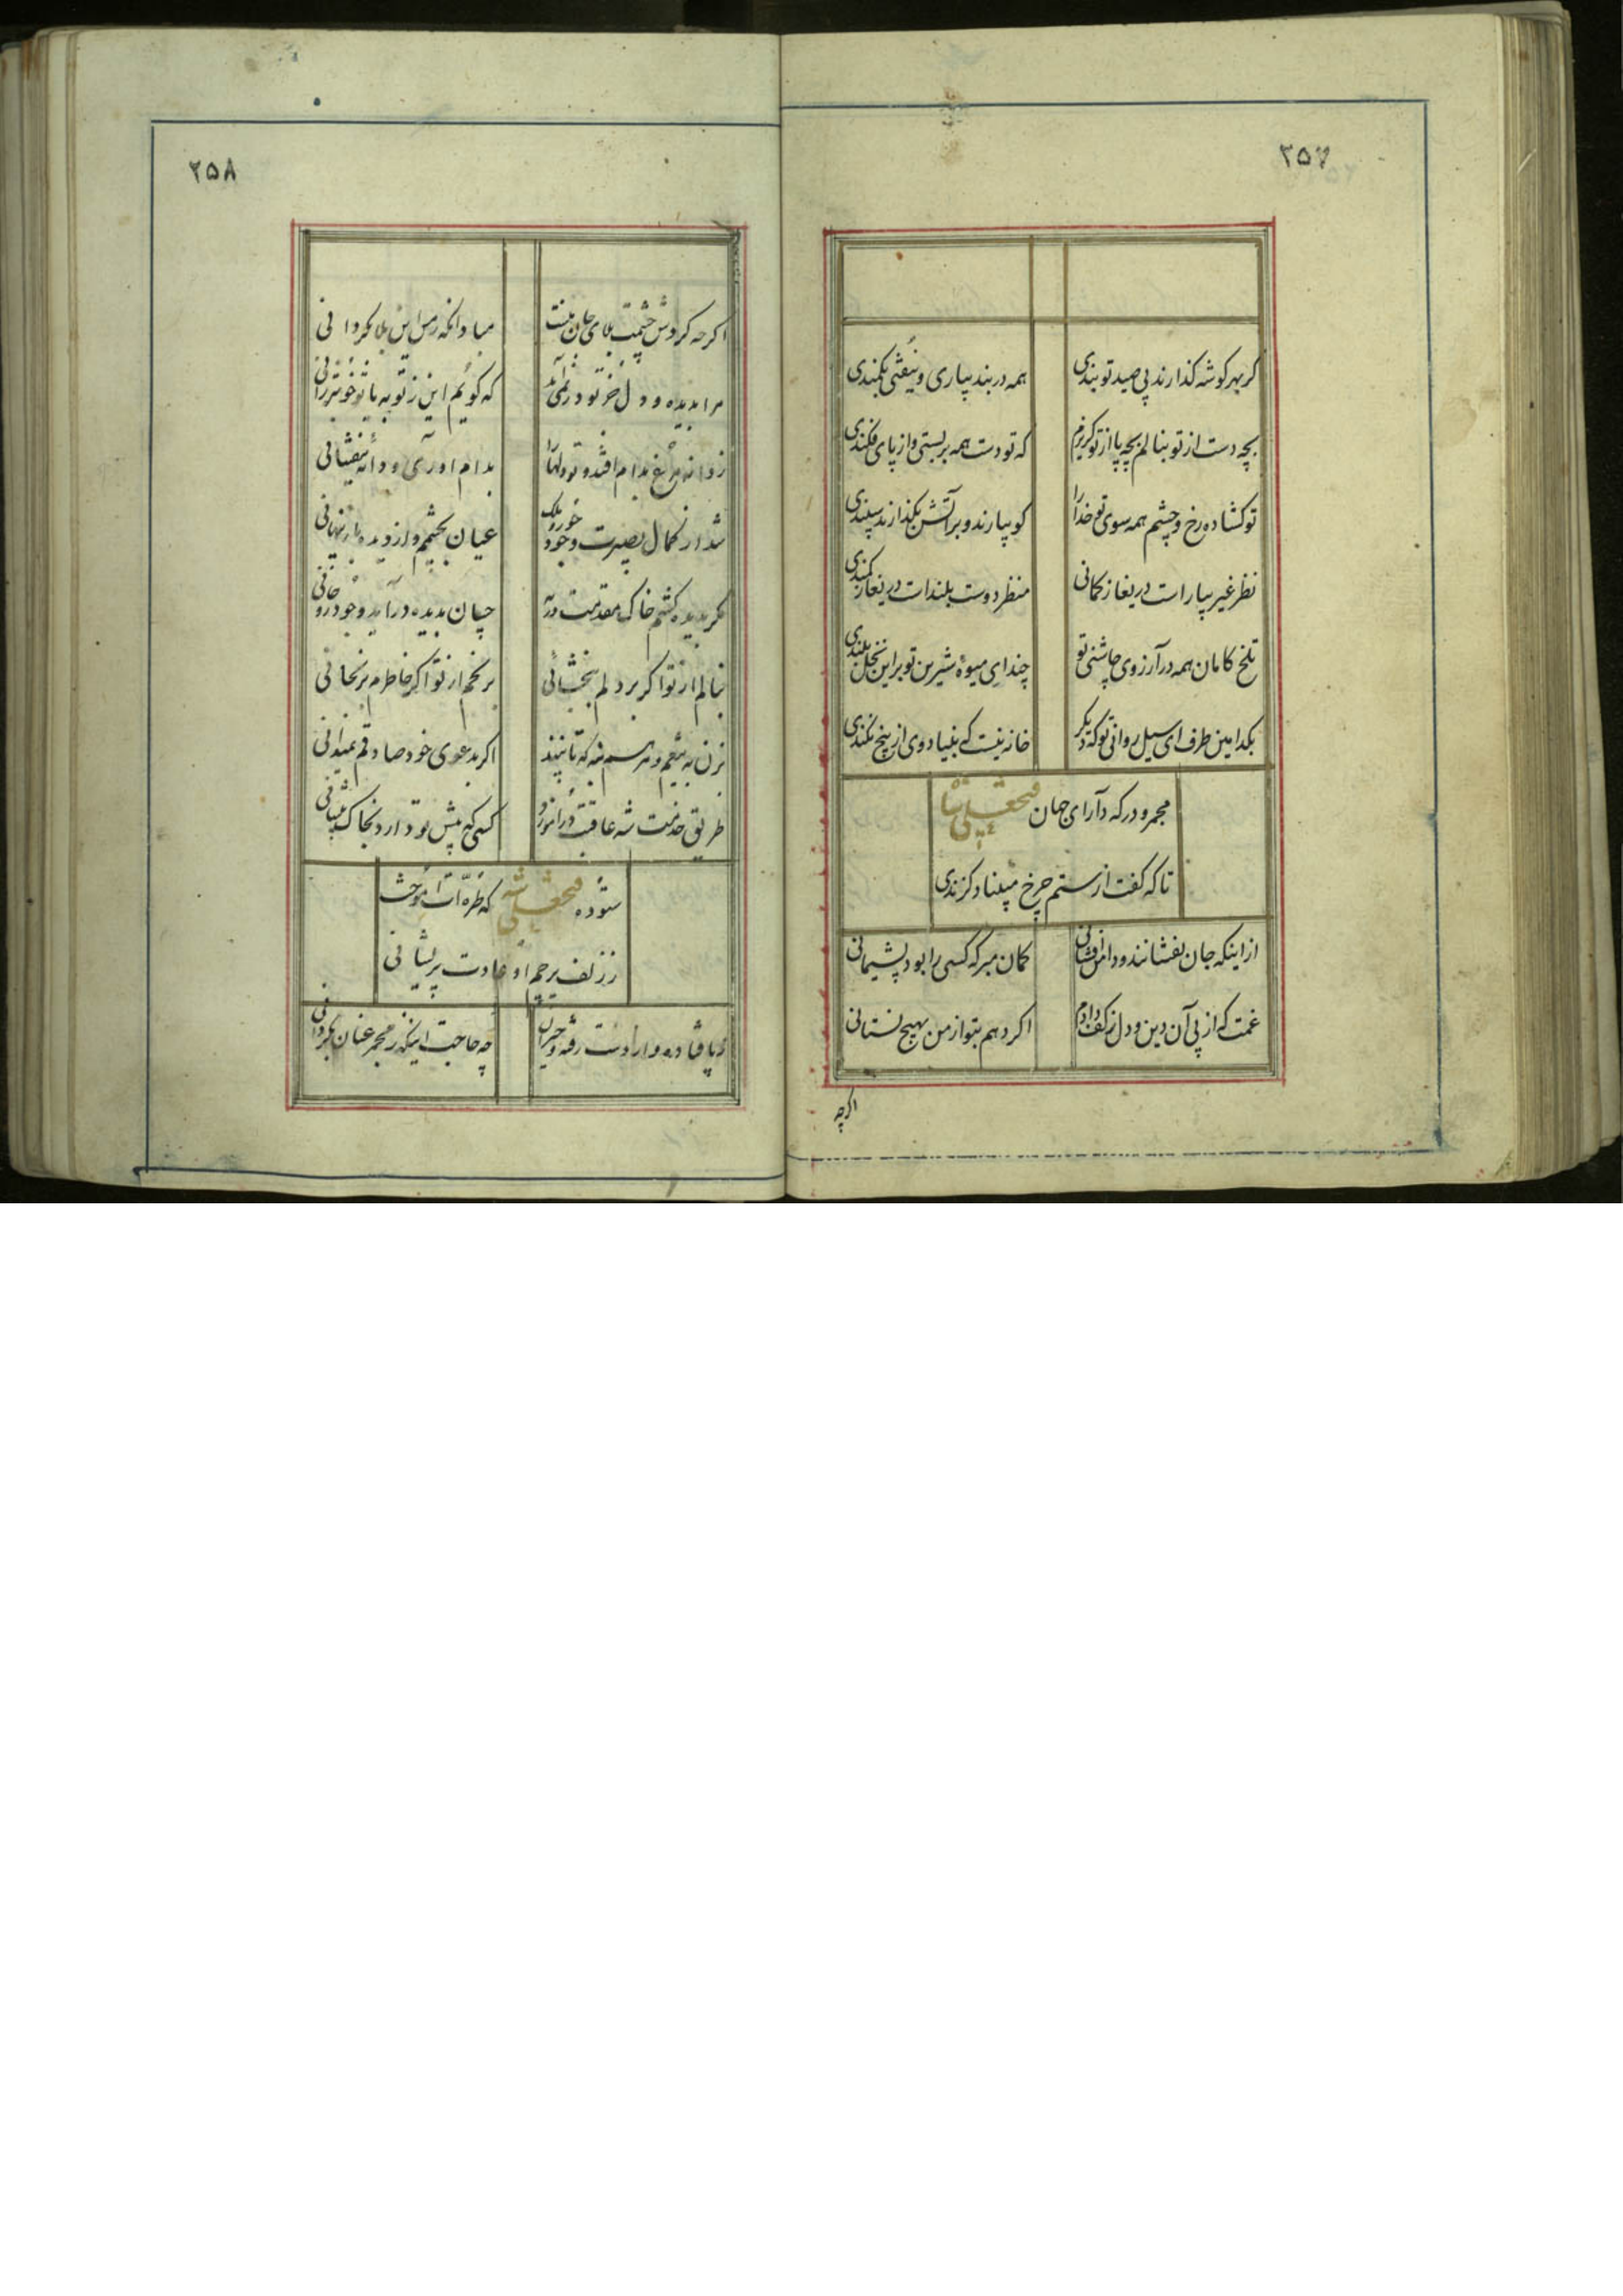 ۲۵۷
گر بهر گوشه گذارند پی صید تو بندی همه در بند بیاری و نیفتی بکمندی
بچه دست از تو بنالم بچه پا از تو گریزم که تو دست همه بربستی و از پای فکندی
تو گشاده رخ و چشم همه سوی تو خدا را کو بیارند و بر آتش بگذارند سپندی
نظر غیر بیار است دریغا ز کمانی منظر دوست بلند است دریغا ز کمندی
تلخ کامان همه در آرزوی چاشنی تو چند ای میوهٔ شیرین تو بر این نخل بلندی
بکدامین طرف ای سیل روانی تو که دیگر خانه نیست که بنیاد وی از بیخ نکندی
مجمر و درگه دارای جهان فتحعلی شاه
تا که گفت از ستم چرخ مبیناد گزندی
از اینکه جان بفشانند و دامن افشانی گمان مبر که کسی را بود پشیمانی
غمت که از پی آن دین و دل ز کف دادم اگر دهم بتو از من بهیچ نستانی
اگرچه
۲۵۸
اگرچه گردش چشمت بلای جان منست مباد آنکه ز من این بلا بگردانی
مرا بدیده و دل جز تو در نمی‌آید که گویم این ز تو به یا تو خوشتر از آنی
ز دانه مرغ بدام افتد و تو دلها را بدام آوری و دانه نیفشانی
شد از کمال بصیرت وجود عیان بچشمم و از دیده باز پنهانی
مگر بدیده کشم خاک مقدمت ورنه چسان بدیده درآید وجود روحانی
ننالم از تو اگر بر دلم نبخشائی نرنجم از تو اگر خاطرم برنجانی
بزن به تیغم و در سینه که تا بینند اگر بدعوی خود صادقم نمیدانی
طریق خدمت شه عاقبت درآموزد کسی که پیش تو دارد بخاک پیشانی
ستوده فتحعلی شه که طره‌ات آموخت
ز زلف پرچم او عادت پریشانی
ز پا فتاده و از دست رفته و حیران چه حاجت اینکه ز مجمر عنان بگردانی